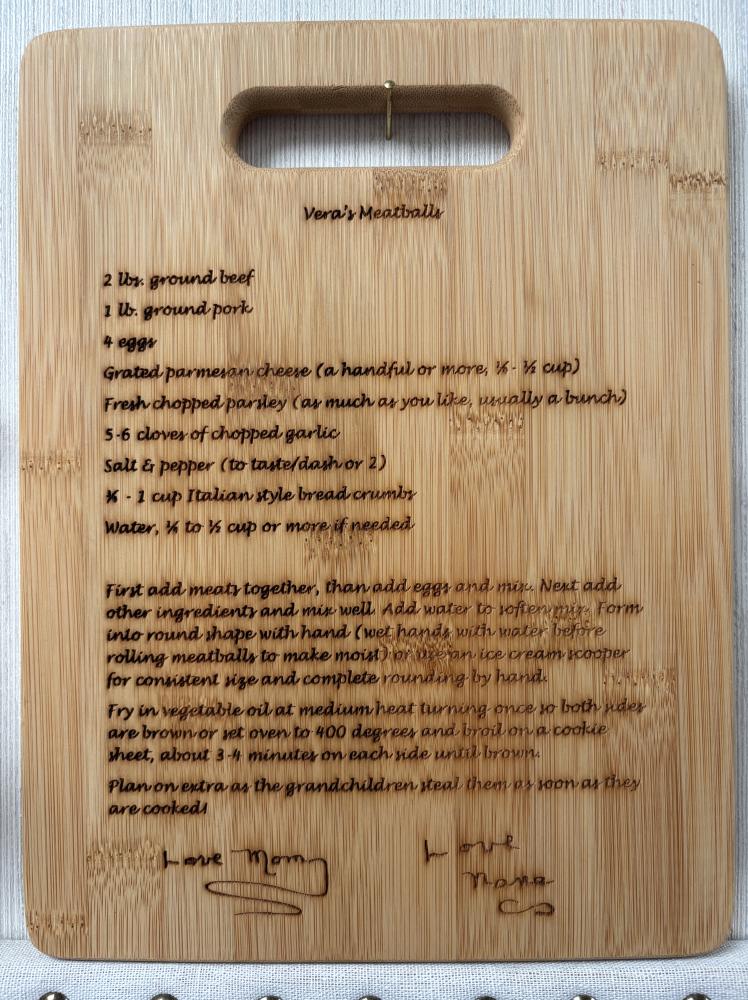 Vera's Meatballs
2 lbs. ground beef
1 lb. ground pork
4 eggs
Grated parmesan cheese (a handful or more, - ½ cup)
Fresh chopped parsley (as much as you like, usually a bunch)
5-6 cloves of chopped garlic
Salt & pepper (to taste/dash or 2)
- 1 cup Italian style bread crumbs
Water, to ½ cup or more if needed
First add meats together, than add eggs and mix. Next add
other ingredients and mix well. Add water to soften mix. Form
into round shape with hand (wet hands with water before
rolling meatballs to make moist) or use an ice cream scooper
for consistent size and complete rounding by hand.
Fry in vegetable oil at medium heat turning once so both sides
are brown or set oven to 400 degrees and broil on a cookie
sheet, about 3-4 minutes on each side until brown.
Plan on extra as the grandchildren steal them as soon as they
are cooked!
Love Mom
Love
Nana